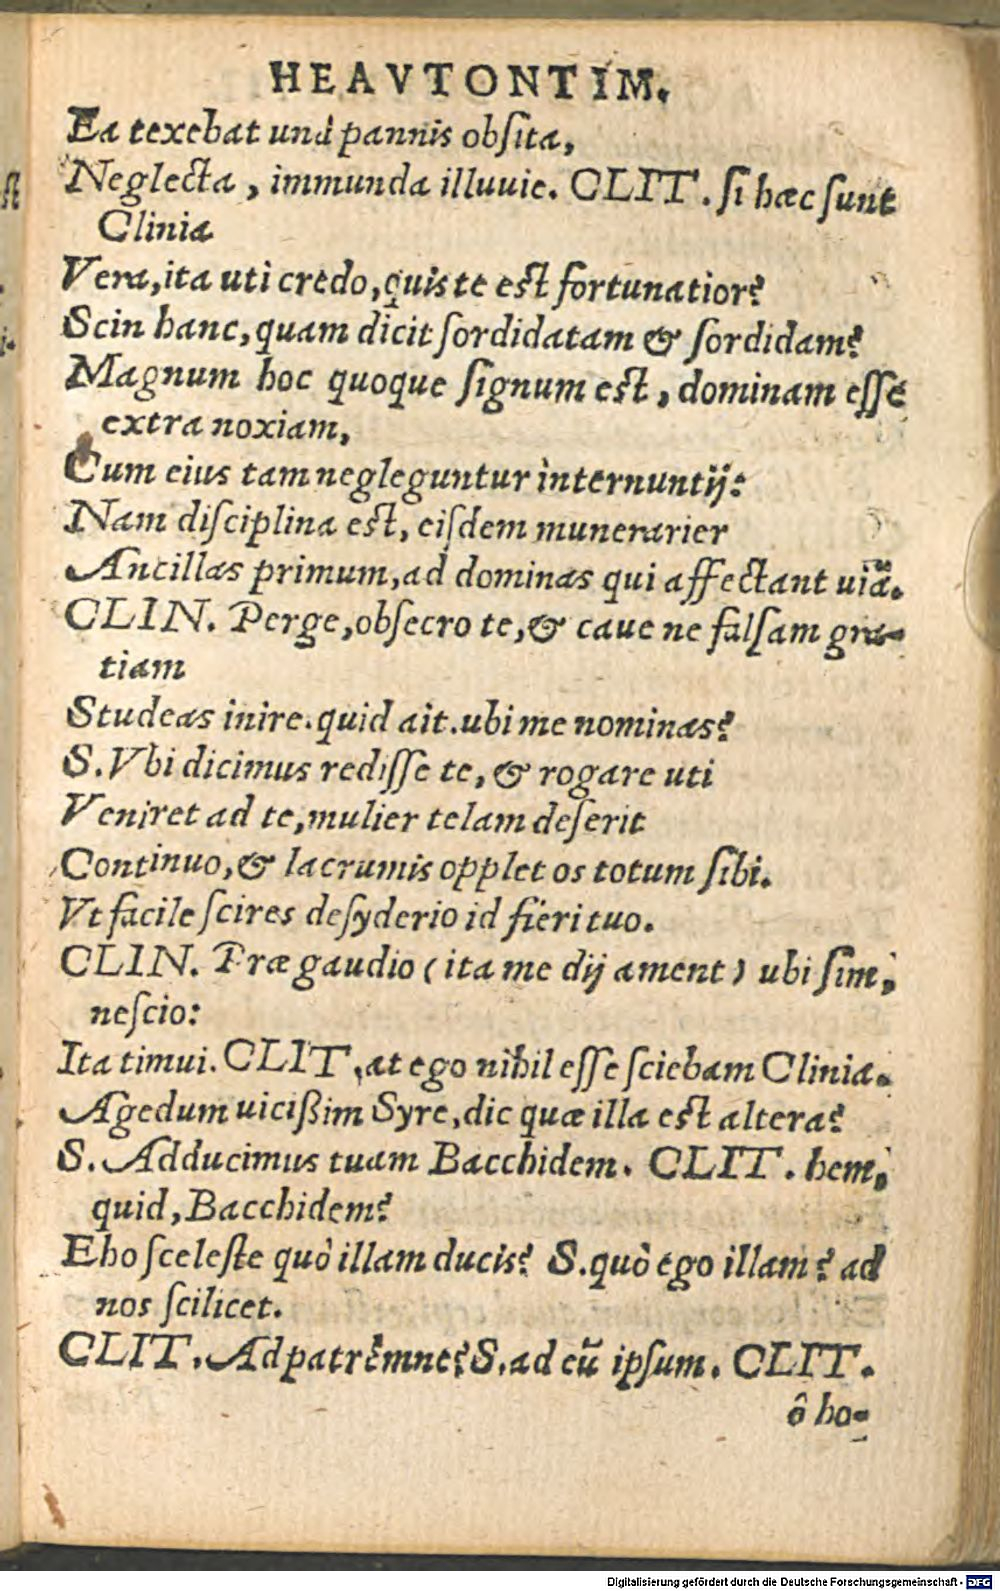 HEAVTONTIM.
Ea texebat unà pannis obſita,
Neglecta, immunda illuuie. CLIT. ſi hæc ſunt
Clinia
Vera, ita uti credo, quis te eſt fortunatior?
Scin hanc, quam dicit ſordidatam & ſordidam?
Magnum hoc quoque ſignum eſt, dominam eſſe
extra noxiam,
Cum eius tam negleguntur internuntij:
Nam diſciplina eſt, eiſdem munerarier
Ancillas primum, ad dominas qui affectant uiã.
CLIN. Perge, obſecro te, & caue ne falſam gra-
tiam
Studeas inire. quid ait. ubi me nominas?
S. Vbi dicimus rediſſe te, & rogare uti
Veniret ad te, mulier telam deſerit
Continuo, & lacrumis opplet os totum ſibi.
Vt facile ſcires deſyderio id fieri tuo.
CLIN. Præ gaudio (ita me dij ament) ubi ſim,
neſcio:
Ita timui. CLIT, at ego nihil eſſe ſciebam Clinia.
Agedum uicißim Syre, dic quæ illa eſt altera?
S. Adducimus tuam Bacchidem. CLIT. hem,
quid, Bacchidem?
Eho ſceleſte quò illam ducis? S. quò ego illam? ad
nos ſcilicet.
CLIT. Ad patrémne? S. ad eũ ipſum. CLIT.
ô ho-
ſt
i-
Digitalisierung gefördert durch die Deutsche Forschungsgemeinschaft - DFG